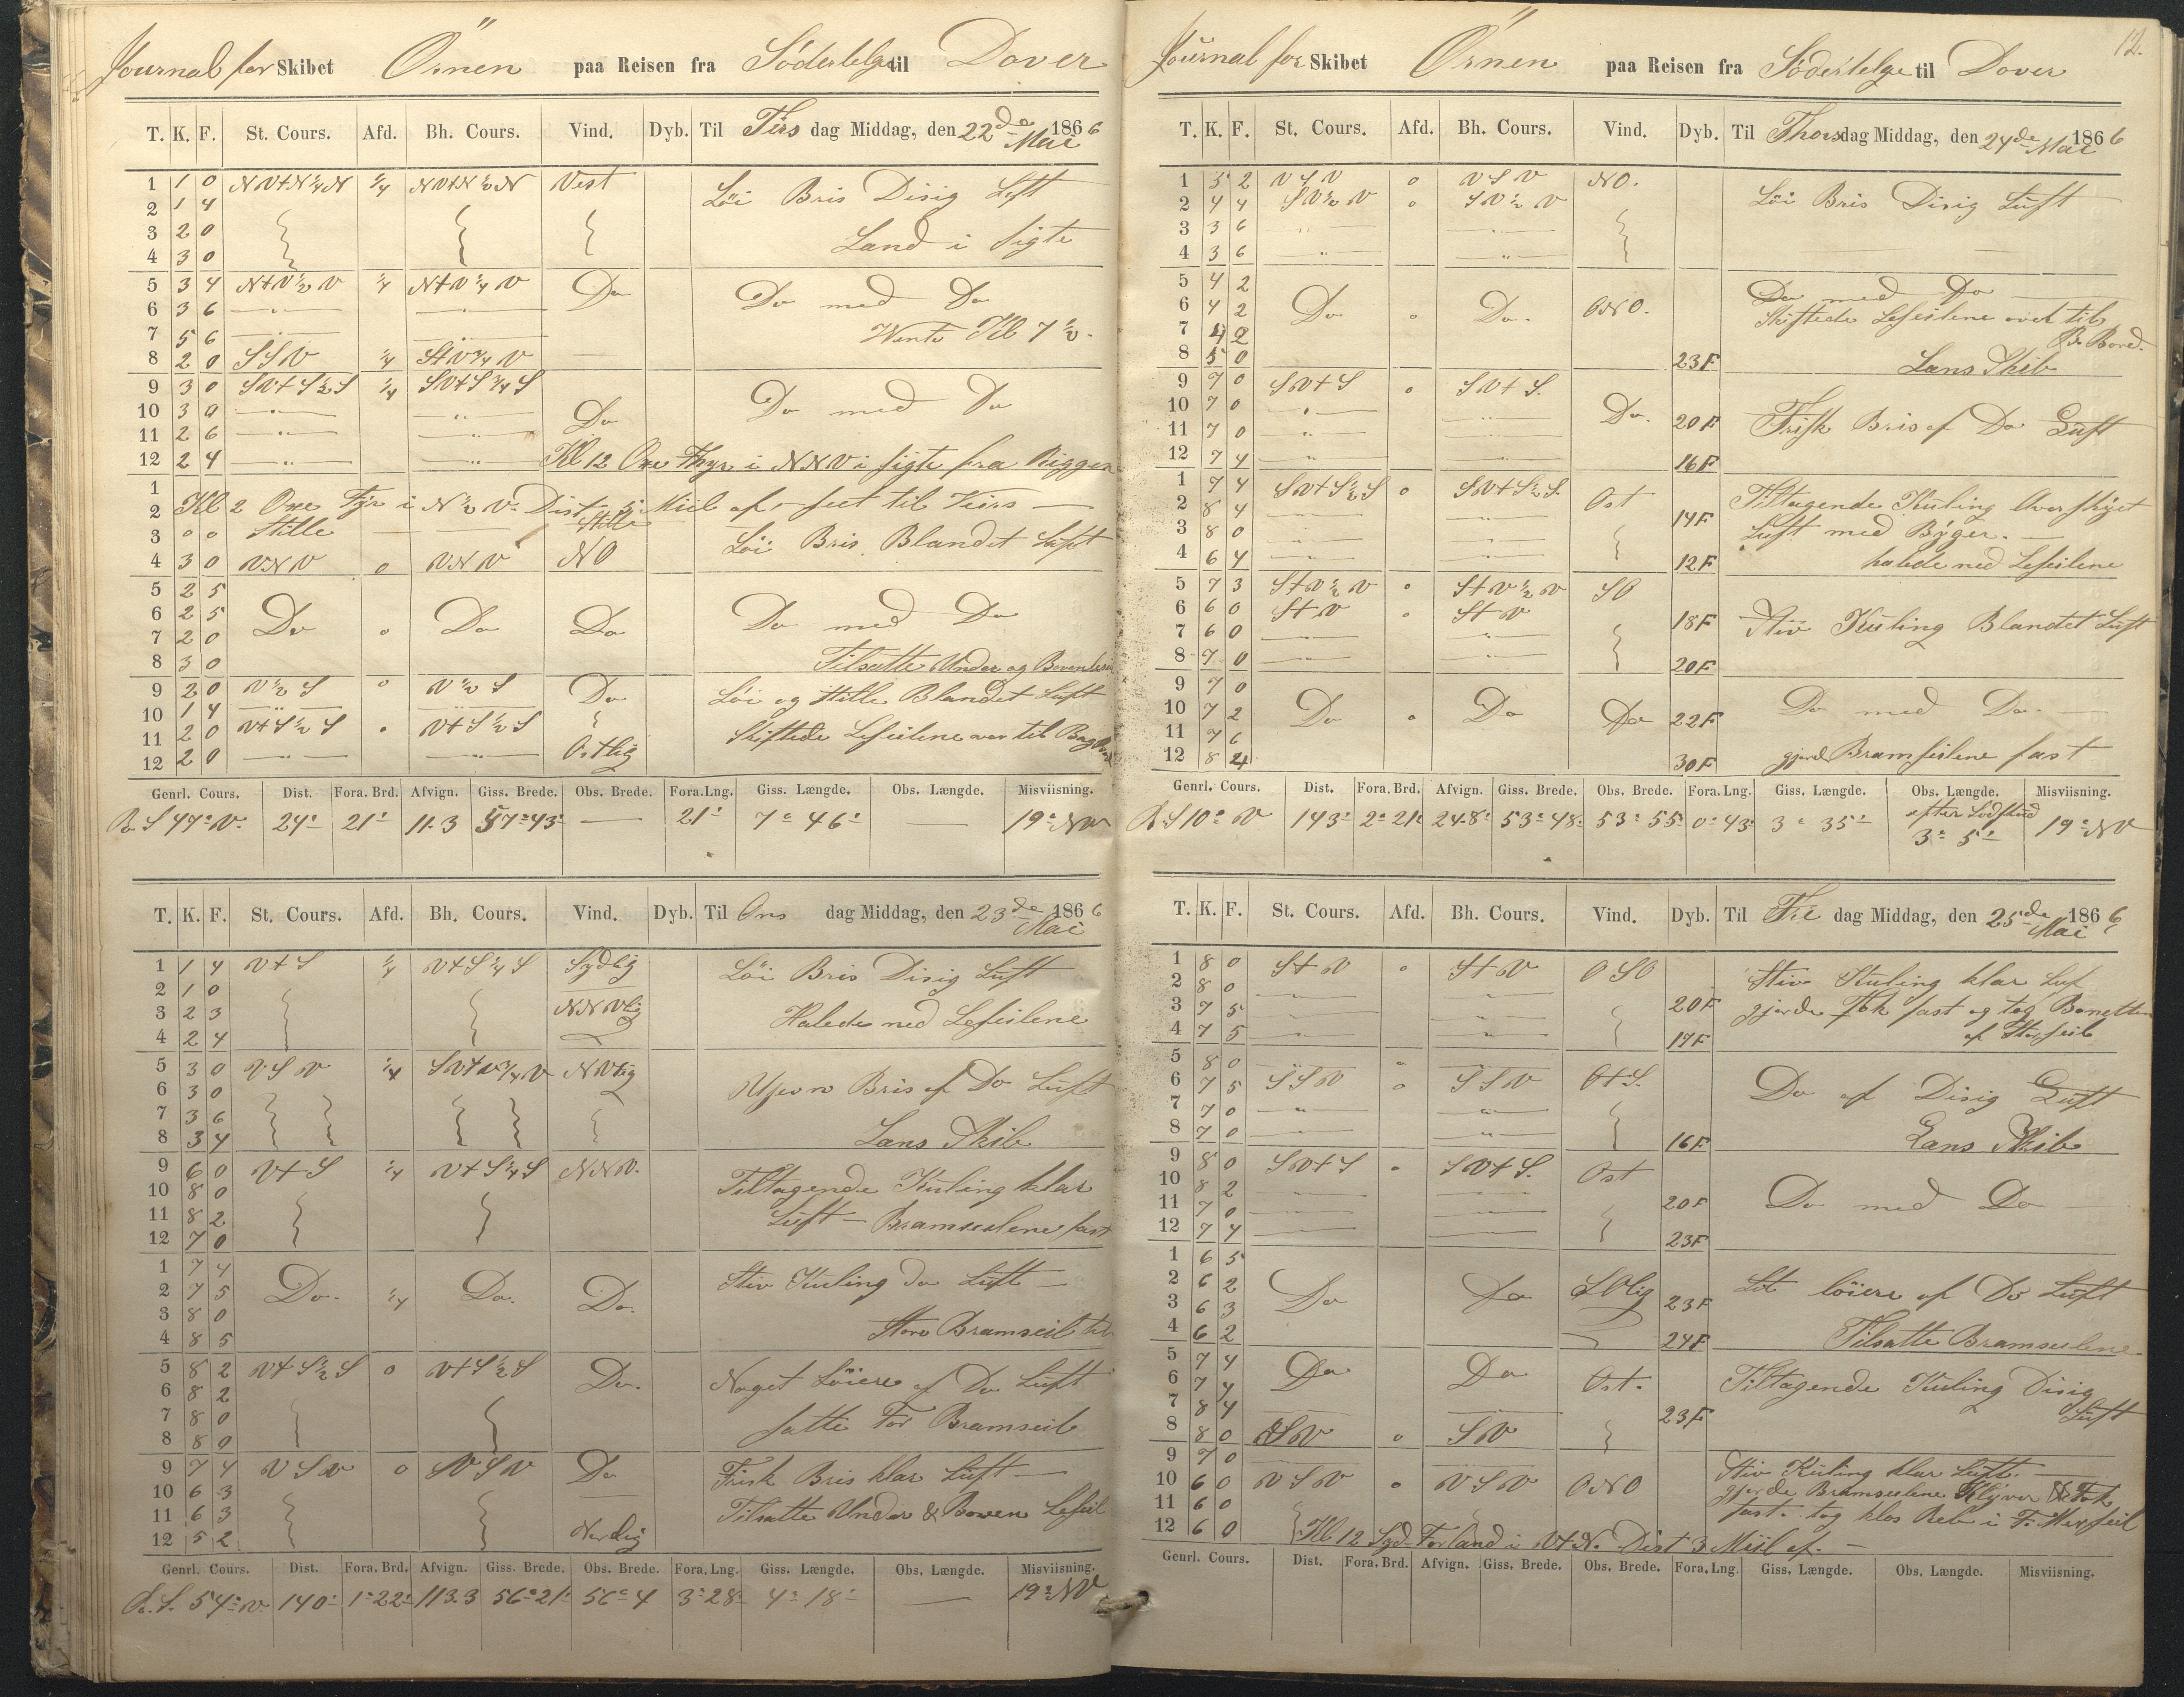 Journal for Skibet Örnen paa Reisen fra Södertelge til Dover
T. K. F. St. Cours. Afd. Bh. Cours. Vind. Dyb. Til Tirsdag Middag, den 22de Mai 1866
1 1 0 NV+N¼N ¼ NV+N½N Vest Löi Bris Disig Luft
2 1 4
3 2 0 Land i sigte
4 3 0
5 3 4 N+V½V ¼ N+V¼V Do Do med Do
6 3 6 — " — — " —
7 5 6 Kl 7½
8 2 0 SSV ¼ S+V¾V
9 3 0 SV+S½S ¼ SV+S¾S Do med Do
10 3 0 — " — — " — Do
11 2 6 — " — — " —
12 2 4 — " — — " — Kl 12 Oxe Fyr i NNV i sigte fra Riggen
1
2 Kl 2 Oxe Fyr i N½V Dist 5 Miil af
3 0 0 Stille Stille Löi Bris Blandet Luft
4 3 0 VNV 0 VNV NO
5 2 5
6 2 5 Do 0 Do Do Do med Do
7 2 0
8 3 0 Tilsatte Under og
9 2 0 V½S 0 V½S Do Löi og Stille Blandet Luft
10 1 4
11 2 0 V+S½S 0 V+S½S Skiftede Leseilene over til
12 2 0 — " — — " — Ostlig
Genrl. Cours. Dist. Fora. Brd. Afvign. Giss. Brede. Obs. Brede. Fora. Lng. Giss. Længde. Obs. Længde. Misviisning.
R. S 47° V. 24' 21' 11.3 57° 43' — 21' 7° 46' — 19° NV
T. K. F. St. Cours. Afd. Bh. Cours. Vind. Dyb. Til Onsdag Middag, den 23de Mai 1866
1 1 4 V+S ¼ V+S¼S Sydlig Löi Bris Disig Luft
2 1 0 NNVlig
3 2 3 Halede ned Leseilene
4 2 4
5 3 0 VSV ¼ SV+V¾V NVlig Ujevn Bris af Do Luft
6 3 0
7 3 6
8 3 4 Lans Skib
9 6 0 V+S ¼ V+S¼S NNV. Tiltagende Kuling klar
10 8 0
11 8 2 Luft — Bramseilene fast
12 7 0
1 7 4 Stiv Kuling Do Luft —
2 7 5 Do. ¼ Do. Do.
3 8 0
4 8 5 Store Bramseil til
5 8 2 V+S½S 0 V+S½S Do. Noget Löiere af Do Luft
6 8 2
7 8 0 satte For Bramseil
8 8 0
9 7 4 VSV 0 VSV Do Frisk Bris klar Luft —
10 6 3
11 6 3 Tilsatte Under & Boven Leseil
12 5 2 Nordlig
Genrl. Cours. Dist. Fora. Brd. Afvign. Giss. Brede. Obs. Brede. Fora. Lng. Giss. Længde. Obs. Længde. Misviisning.
R. S. 54° V. 140' 1° 22' 113.3 56° 21' 56° 4 3° 28' 4° 18' — 19° NV
12.
Journal for Skibet Örnen paa Reisen fra Södertelge til Dover
T. K. F. St. Cours. Afd. Bh. Cours. Vind. Dyb. Til Thorsdag Middag, den 24de Mai 1866
1 3 2 VSV 0 VSV NO. Löi Bris Disig Luft
2 4 4 SV½V 0 SV½V
3 3 6 — " — — " —
4 3 6 — " — — " —
5 4 2 Do med Do
6 4 2 Do 0 Do. ONO. Skiftede Leseilene over til
7 4 2 B. Bord.
8 5 0 23F Lans Skib
9 7 0 SV+S 0 SV+S.
10 7 0 — " — — " — Do. 20F Frisk Bris af Do Luft
11 7 0 — " — — " —
12 7 4 — " — — " — 16F
1 7 4 SV+S½S 0 SV+S½S. Ost Tiltagende Kuling Overskyet
2 8 4 14F
3 8 0 Luft med Byger. —
4 6 4 12F halede ned Leseilene
5 7 3 S+V½V 0 S+V½V SO
6 6 0 S+V 0 S+V 18F Stiv Kuling Blandet Luft
7 6 0 — " — — " —
8 7 0 — " — — " — 20F
9 7 0
10 7 2 Do 0 Do Do 22F Do med Do. —
11 7 6
12 8 4 30F gjord Bramseilene fast
Genrl. Cours. Dist. Fora. Brd. Afvign. Giss. Brede. Obs. Brede. Fora. Lng. Giss. Længde. Obs. Længde. Misviisning.
R. S 10° V 143' 2° 21' 24.8' 53° 48' 53° 55' 0° 43' 3° 35' efter 3° 5' 19° NV
T. K. F. St. Cours. Afd. Bh. Cours. Vind. Dyb. Til Fredag Middag, den 25de Mai 1866
1 8 0 S+V 0 S+V OSO Stiv Kuling klar Luf
2 8 0
3 7 5 — " — — " — 20F gjorde Fok fast og tog Bonetten
4 7 5 — " — — " — 17F af Storseil
5 8 0
6 7 5 SSV 0 SSV O+S. Do af Disig Luft
7 7 0 — " — — " —
8 7 0 — " — — " — 16F Lans Skib
9 8 0 SV+S 0 SV+S. Ost
10 8 2 20F Do med Do
11 7 0
12 7 4 23F
1 6 5
2 6 2 Do Do SOlig 23F Lit löiere af Do Luft
3 6 3
4 6 2 24F Tilsatte Bramseilene
5 7 4 Do Do
6 7 4 Ost. Tiltagende Kuling Disig
7 8 4 23F Luft
8 8 0 SV 0 SV
9 7 0 Stiv Kuling klar Luft. —
10 6 0 VSV 0 VSV ONO gjorde Bramseilene Klyver & Fok
11 6 0 fast. tog klos Reb i F. Merseil
12 6 0 Kl 12 Syd Forland i V+N. Dist 3 Miil af. —
Genrl. Cours. Dist. Fora. Brd. Afvign. Giss. Brede. Obs. Brede. Fora. Lng. Giss. Længde. Obs. Længde. Misviisning.